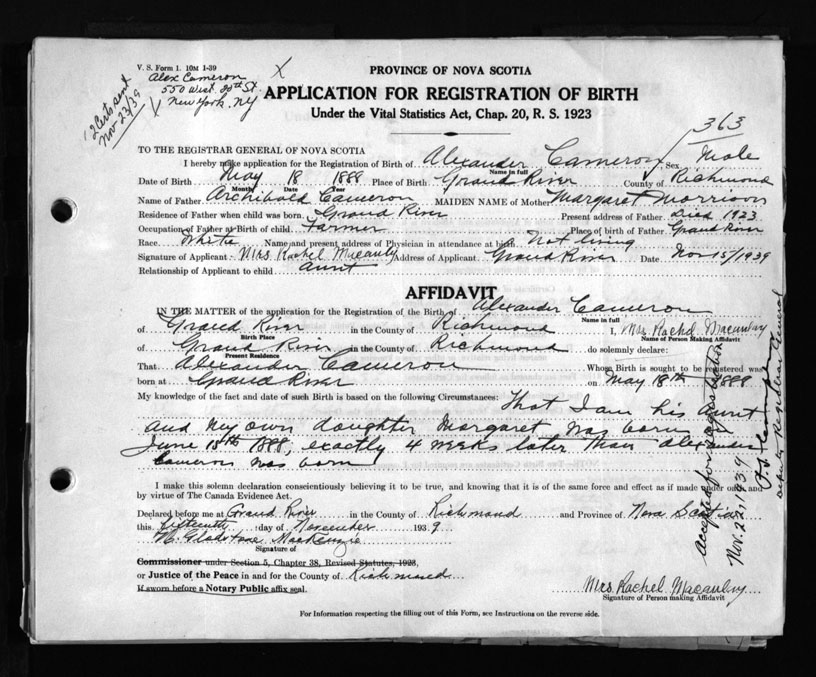 V. S. Form 1. 10M 1-39
Alex Cameron
550 West 20th St.
New York. NY
2 Certs sent
Nov 23/39
X
PROVINCE OF NOVA SCOTIA
APPLICATION FOR REGISTRATION OF BIRTH
Under the Vital Statistics Act, Chap. 20, R. S. 1923
363
TO THE REGISTRAR GENERAL OF NOVA SCOTIA
I hereby make application for the Registration of Birth of Alexander Cameron Sex Male
Name in full
Date of Birth May 18 1888 Place of Birth Grand River County of Richmond
Month Day Year
Name of Father Archibald Cameron MAIDEN NAME of Mother Margaret Morrison
Residence of Father when child was born Grand River Present address of Father Died 1923
Occupation of Father at Birth of child Farmer Place of birth of Father Grand River
Race White Name and present address of Physician in attendance at birth Not living
Signature of Applicant Mrs. Rachel Macaulay Address of Applicant Grand River Date Nov 15/1939
Relationship of Applicant to child aunt
AFFIDAVIT
IN THE MATTER of the application for the Registration of the Birth of Alexander Cameron
Name in full
of Grand River in the County of Richmond I, Mrs Rachel Macaulay
Birth Place Name of Person Making Affidavit
of Grand River in the County of Richmond do solemnly declare:
Present Residence
That Alexander Cameron Whose Birth is sought to be registered was
born at Grand River on May 18th 1888
My knowledge of the fact and date of such Birth is based on the following Circumstances: That I am his aunt
and my own daughter Margaret was born
June 15th 1888, exactly 4 weeks later than Alexander
Cameron was born
I make this solemn declaration conscientiously believing it to be true, and knowing that it is of the same force and effect as if made under oath and
by virtue of The Canada Evidence Act.
Declared before me at Grand River in the County of Richmond and Province of Nova Scotia
this fifteenth day of November 1939
M. Gladstone MacKenzie
Signature of
Commissioner under Section 5, Chapter 38, Revised Statutes, 1923,
or Justice of the Peace in and for the County of Richmond
If sworn before a Notary Public affix seal.
Mrs. Rachel Macaulay
Signature of Person making Affidavit
For Information respecting the filling out of this Form, see Instructions on the reverse side.
Accepted for registration
Nov. 22, 1939
Deputy Registrar General